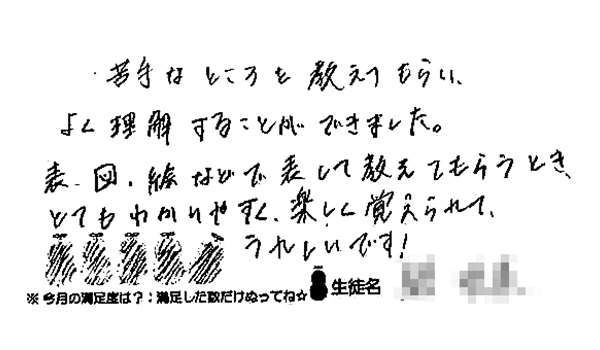 ・苦手なところを教えてもらい、
よく理解することができました。
表・図・絵などで表して教えてもらうとき、
とてもわかりやすく、楽しく覚えられて、
うれしいです!
※今月の満足度は?:満足した数だけぬってね☆
生徒名